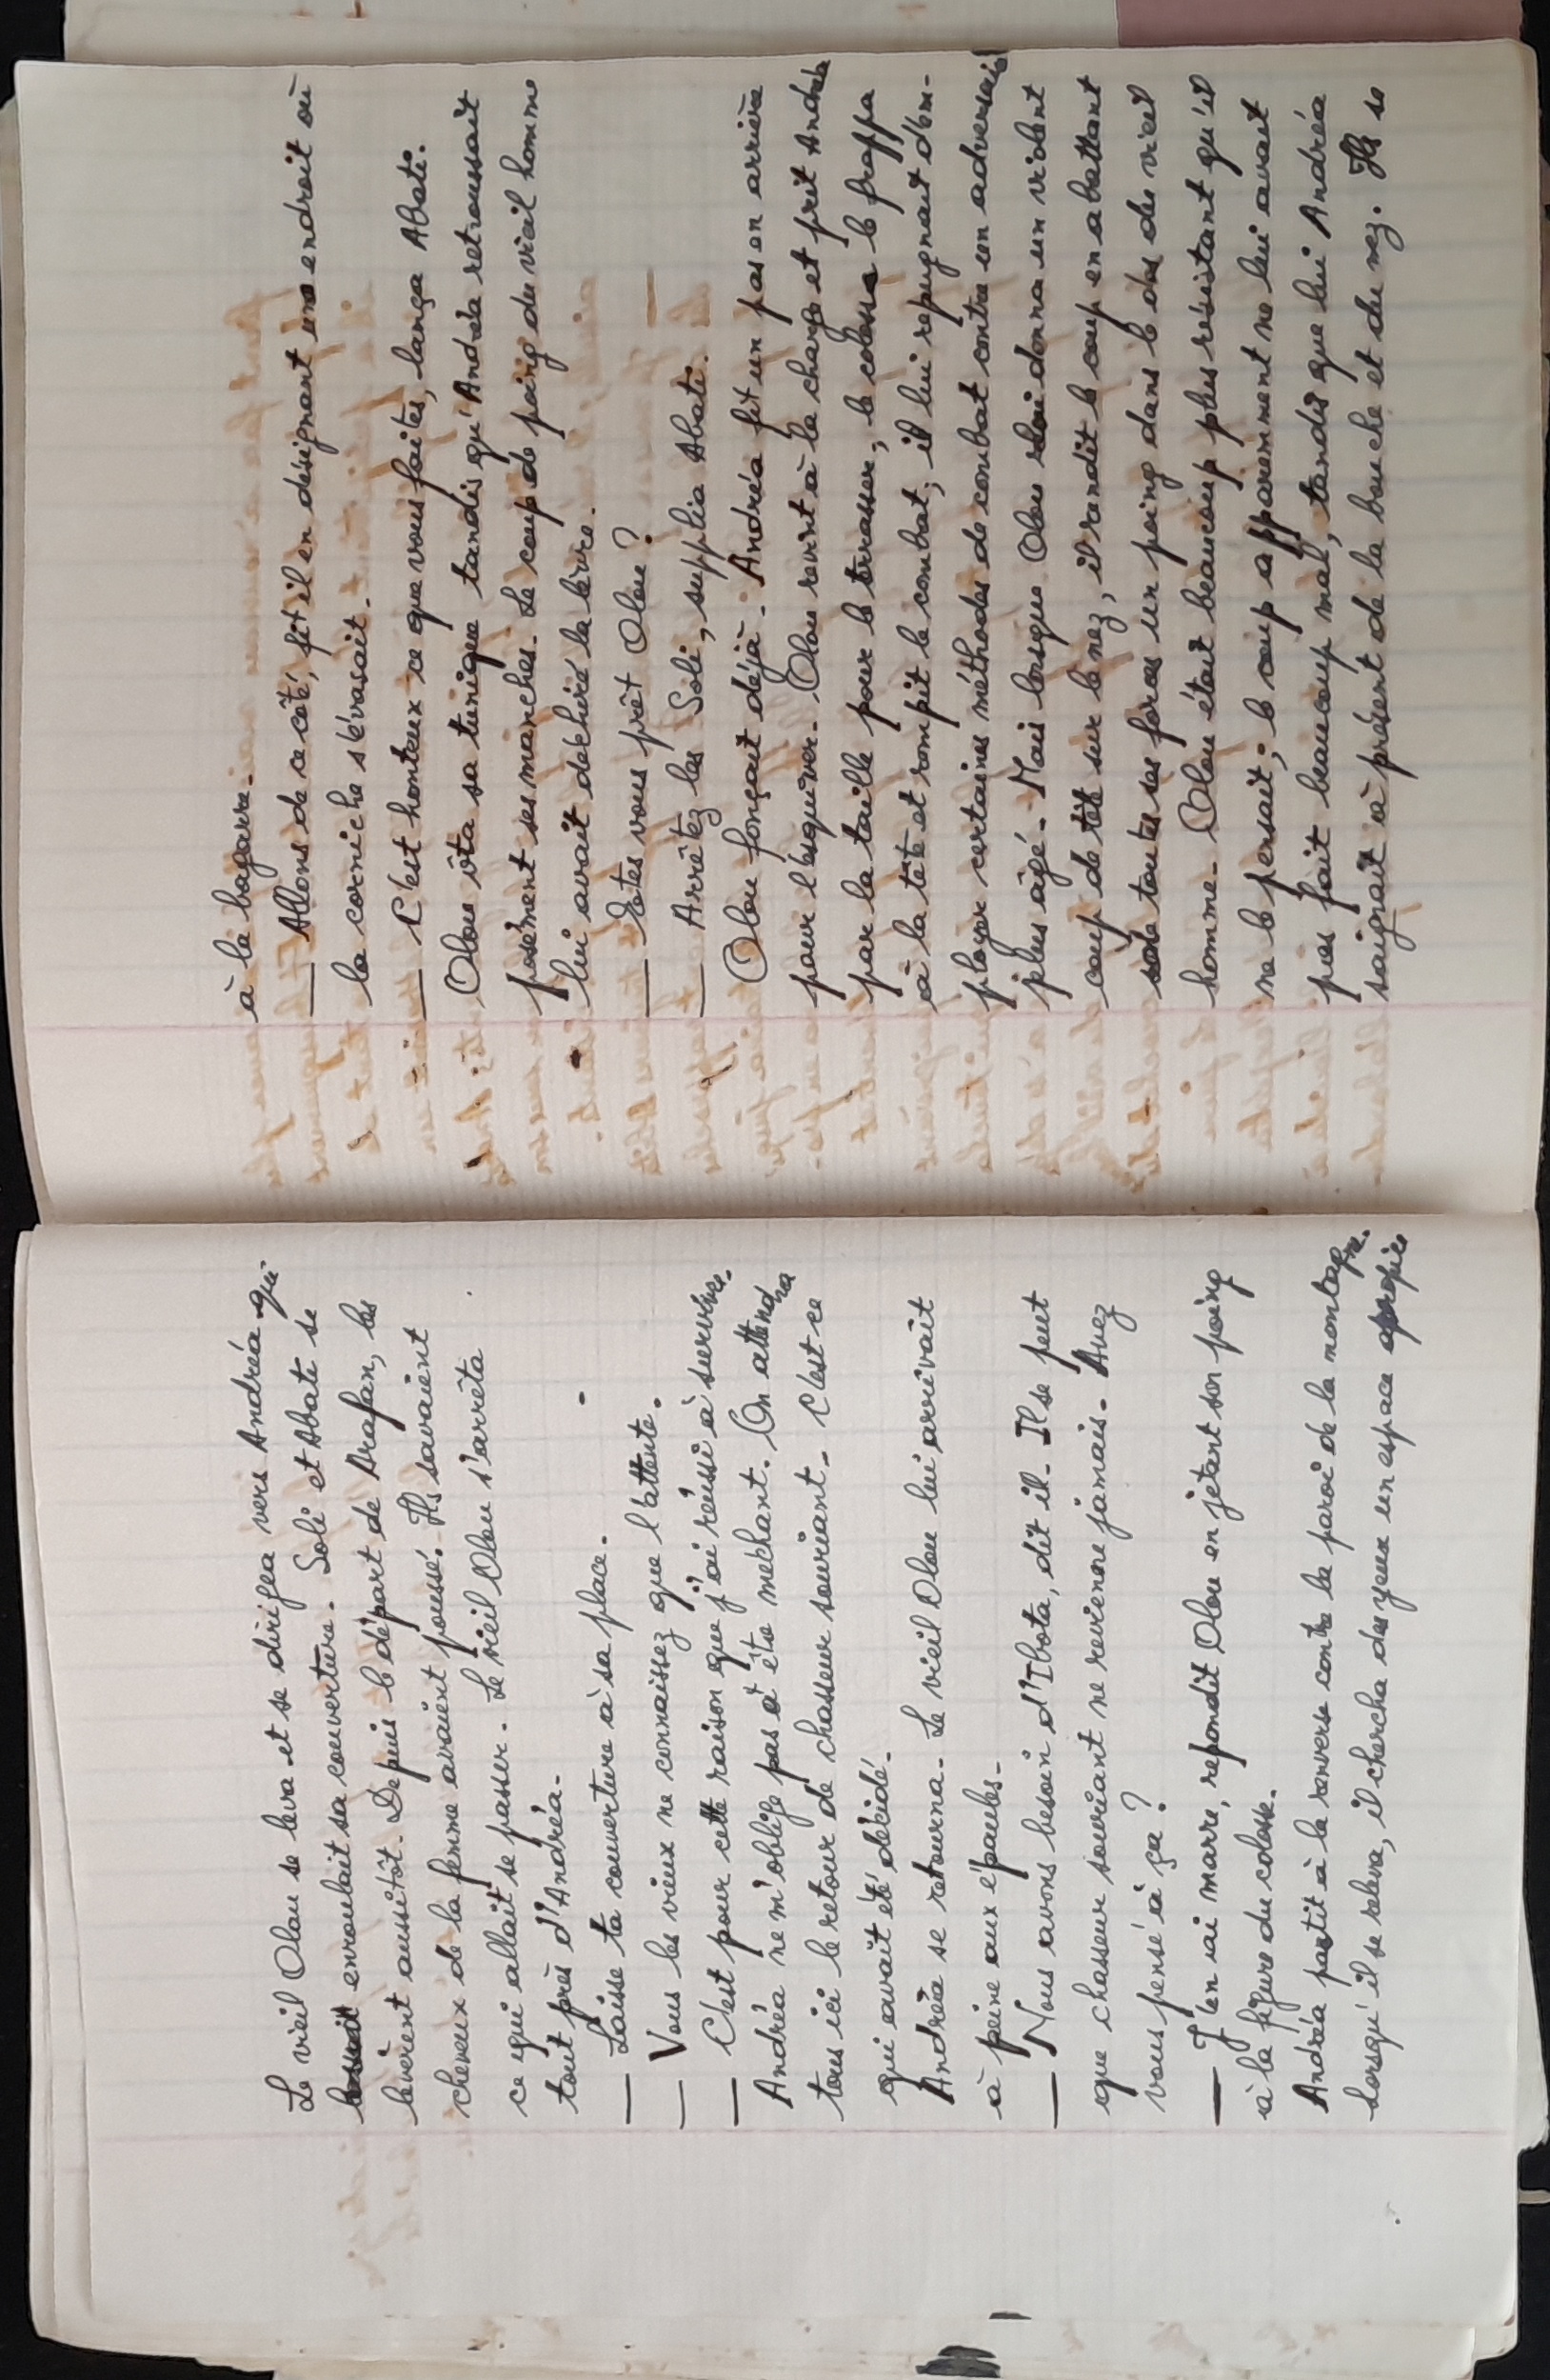 Le vieil Olou se leva et se dirigea vers Andréa qui
enroulait sa couverture. Soli et Abate se
levèrent aussitôt. Depuis le départ de Arafan, les
cheveux de la femme avaient poussé. Ils savaient
ce qui allait se passer. Le vieil Olou s'arrêta
tout près d'Andréa.
— Laisse ta couverture à sa place.
— Vous les vieux ne connaissez que l'attente.
— C'est pour cette raison que j'ai réussi à survivre.
Andréa ne m'oblige pas à être mechant. On attendra
tous ici le retour de chasseur souriant. C'est ce
qui avait été décidé.
Andréa se retourna. Le vieil Olou lui arrivait
à peine aux épaules.
— Nous avons besoin d'Ibota, dit il. Il se peut
que chasseur souriant ne revienne jamais. Avez
vous pensé à ça ?
— J'en ai marre, repondit Olou en jetant son poing
à la figure du colosse.
Andréa partit à la renverse contre la paroi de la montagne.
Lorsqu'il se releva, il chercha des yeux un espace
à la bagarre.
— Allons de ce côté, fit il en désignant un endroit où
la corniche s'évasait.
— C'est honteux ce que vous faites, lança Abate.
Olou ôta sa tunique tandis qu'Andréa retroussait
posément ses manches. Le coup de poing du vieil homme
lui avait déchiré la lèvre.
— Êtes vous prêt Olou ?
— Arrêtez les Soli, supplia Abate.
Olou fonçait déjà. Andréa fit un pas en arrière
pour l'esquiver. Olou revint à la charge et prit Andréa
par la taille pour le terrasser, le colosse le frappa
à la tête et rompit le combat; il lui repugnait d'em-
ployer certaines méthodes de combat contre un adversaire
plus âgé. Mais lorsque Olou lui donna un violent
coup de tête sur le nez, il rendit le coup en abattant
de toutes ses forces un poing dans le dos du vieil
homme. Olou était beaucoup plus résistant qu'il
ne le pensait; le coup apparemment ne lui avait
pas fait beaucoup mal, tandis que lui Andréa
saignait à présent de la bouche et du nez. Ils se